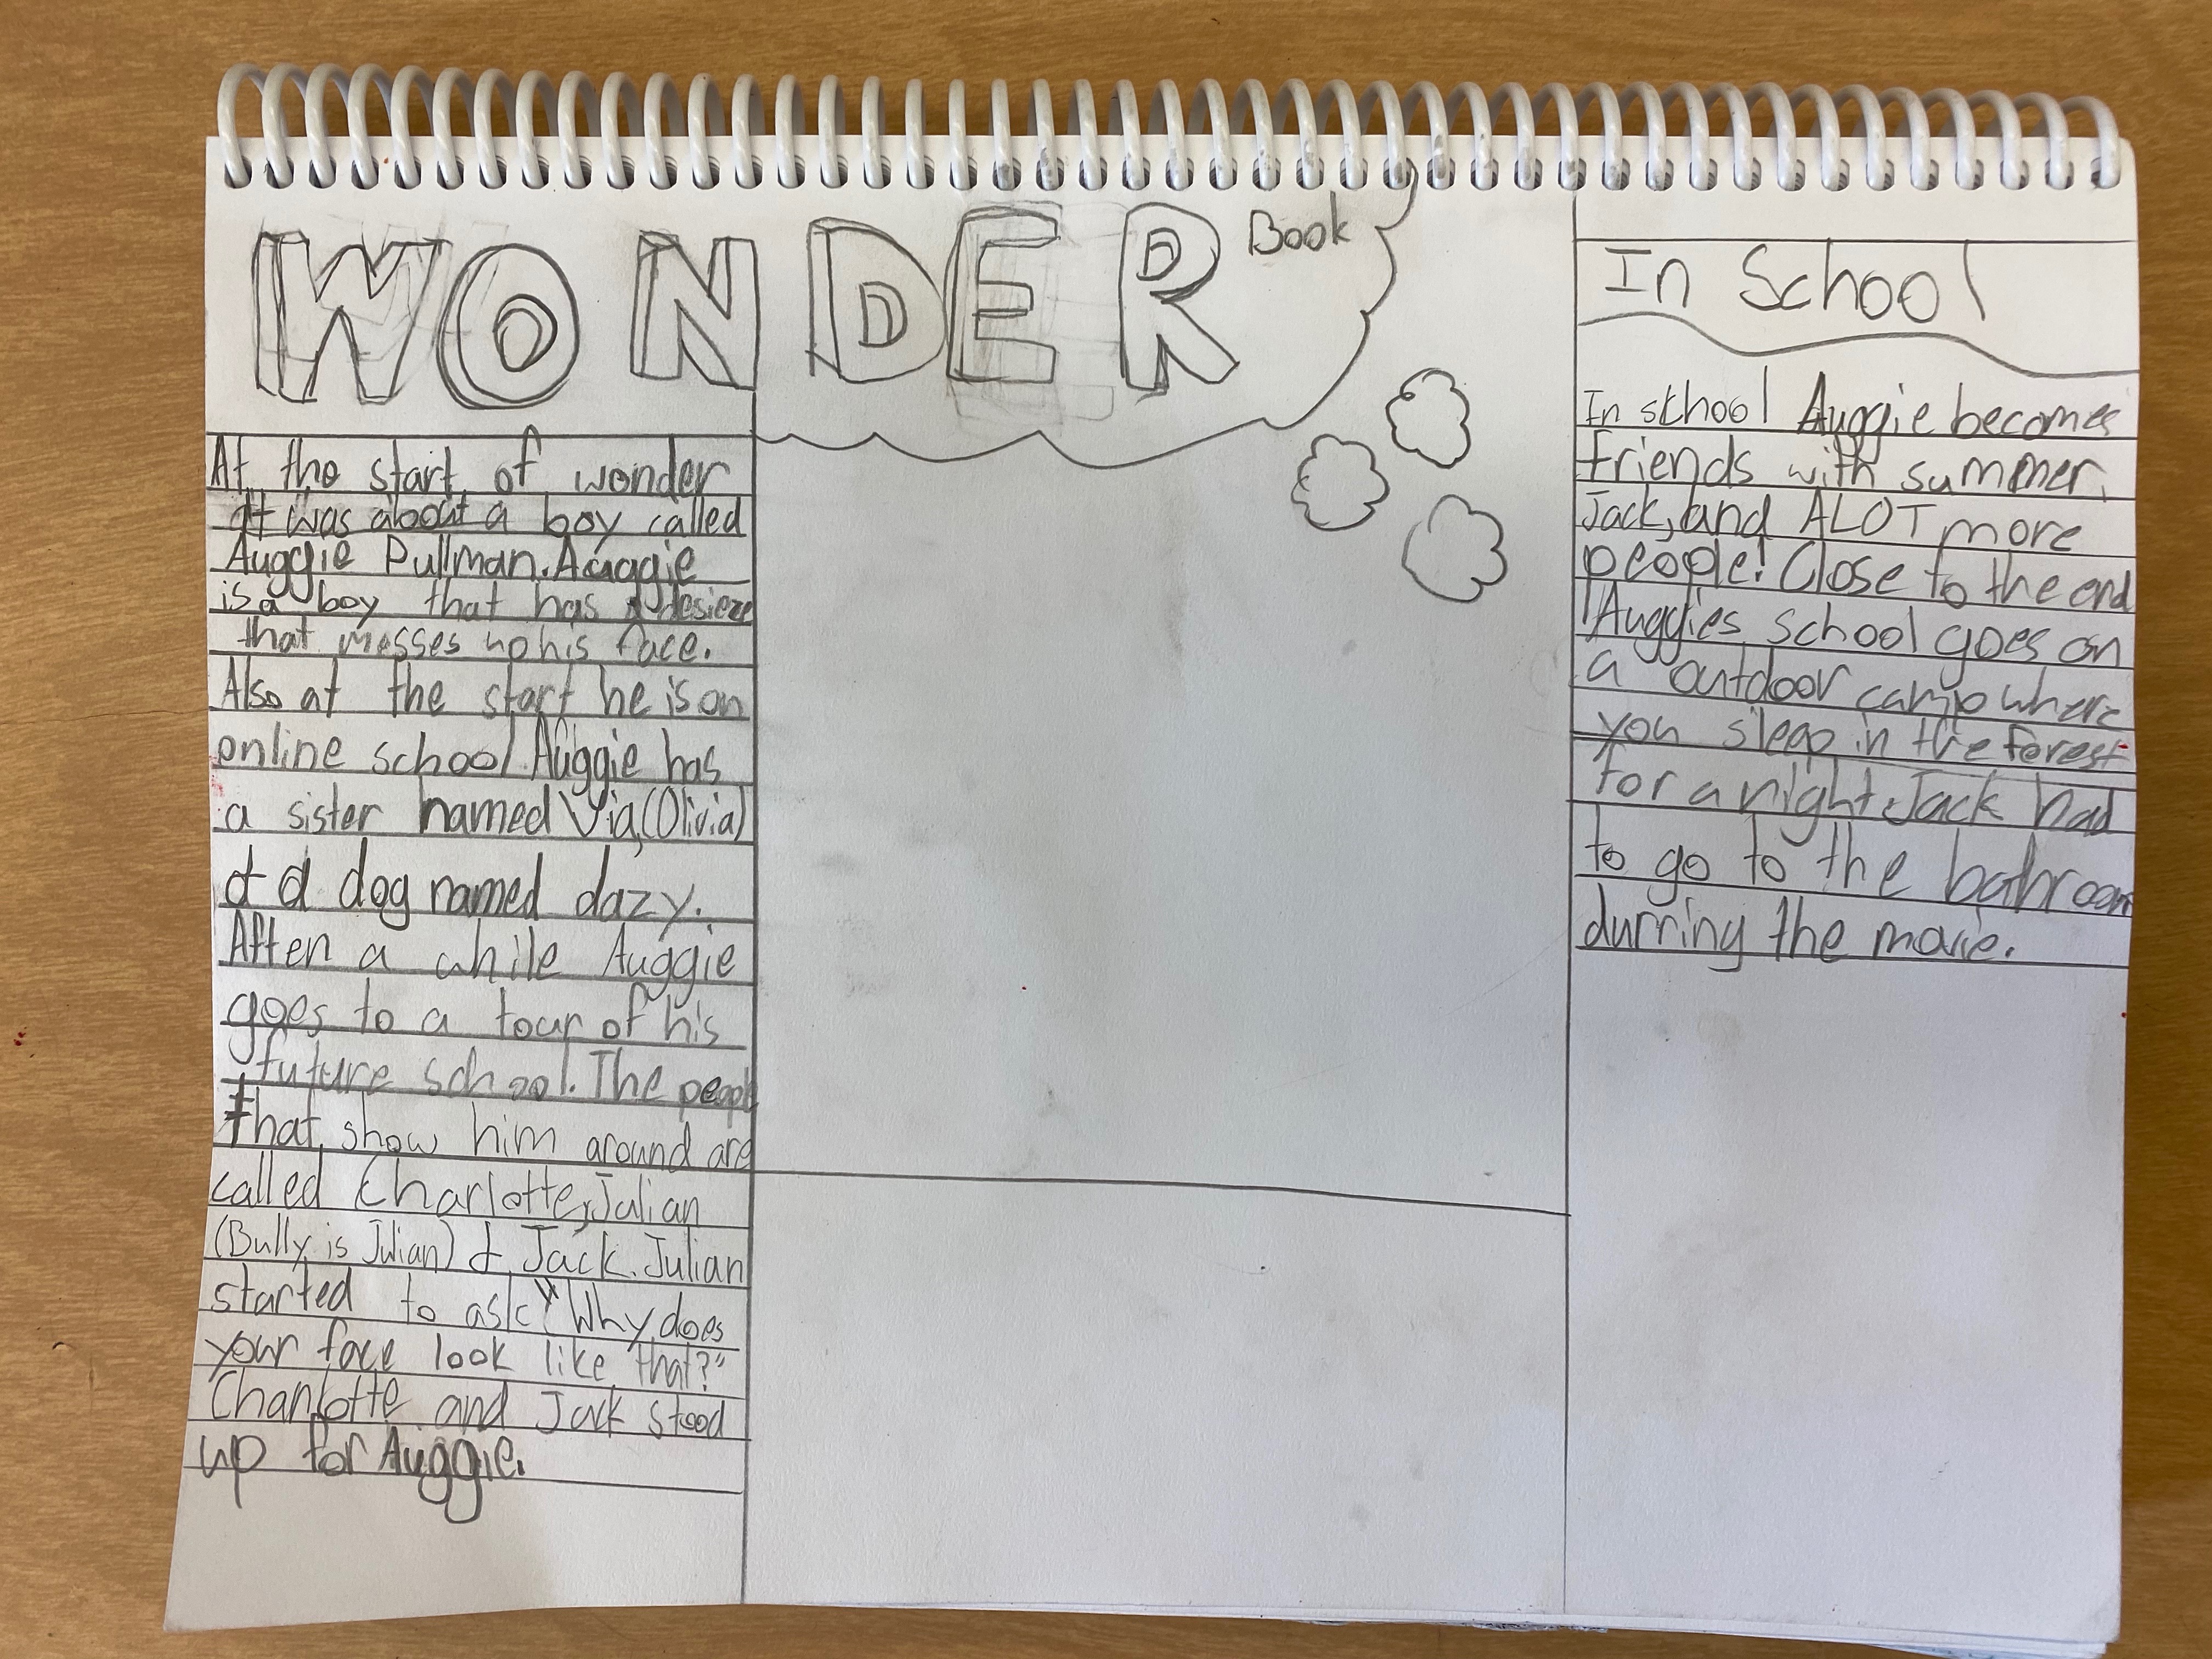 WONDER Book
At the start of wonder
it was about a boy called
Auggie Pullman. Auggie
is a boy that has a desieze
that messes up his face.
Also at the start he is on
online school. Auggie has
a sister named Via, (Olivia)
& a dog named dazy.
After a while Auggie
goes to a tour of his
future school. The people
that show him around are
called Charlotte, Julian
(Bully is Julian) & Jack. Julian
started to ask "Why does
your face look like that?"
Charlotte and Jack stood
up for Auggie.
In School
In school Auggie becomes
friends with summer,
Jack, and ALOT more
people! Close to the end
Auggies school goes on
a outdoor camp where
you sleep in the forest
for a night. Jack had
to go to the bathroom
durring the movie.